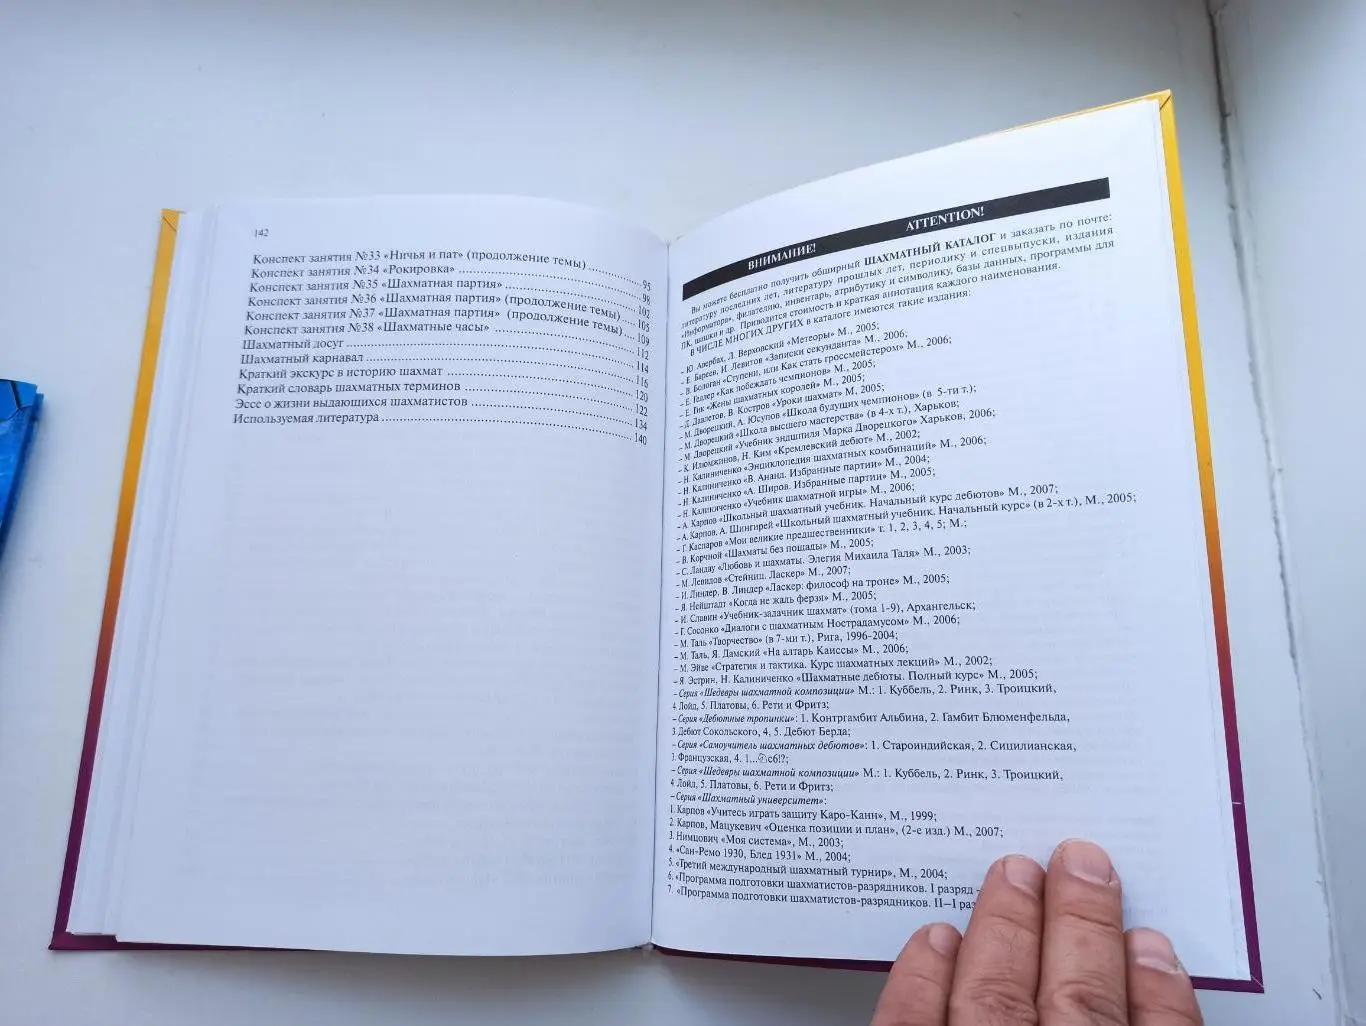 142
Конспект занятия №33 «Ничья и пат» (продолжение темы) 95
Конспект занятия №34 «Рокировка» 98
Конспект занятия №35 «Шахматная партия» 102
Конспект занятия №36 «Шахматная партия» (продолжение темы) 105
Конспект занятия №37 «Шахматная партия» (продолжение темы) 109
Конспект занятия №38 «Шахматные часы» 112
Шахматный досуг 114
Шахматный карнавал 116
Краткий экскурс в историю шахмат 120
Краткий словарь шахматных терминов 122
Эссе о жизни выдающихся шахматистов 134
Используемая литература 140
ВНИМАНИЕ! ATTENTION!
Вы можете бесплатно получить обширный ШАХМАТНЫЙ КАТАЛОГ и заказать по почте:
литературу последних лет, литературу прошлых лет, периодику и спецвыпуски, издания
«Информатора», филателию, инвентарь, атрибутику и символику, базы данных, программы для
ПК, шашки и др. Приводится стоимость и краткая аннотация каждого наименования.
В ЧИСЛЕ МНОГИХ ДРУГИХ в каталоге имеются такие издания:
– Ю. Авербах, Л. Верховский «Метеоры» М., 2005;
– Е. Бареев, И. Левитов «Записки секунданта» М., 2006;
– В. Бологан «Ступени, или Как стать гроссмейстером» М., 2006;
– Е. Геллер «Как побеждать чемпионов» М., 2005;
– Е. Гик «Жены шахматных королей» М., 2005;
– Д. Давлетов, В. Костров «Уроки шахмат» М., 2005;
– М. Дворецкий, А. Юсупов «Школа будущих чемпионов» (в 5-ти т.);
– М. Дворецкий «Школа высшего мастерства» (в 4-х т.), Харьков;
– М. Дворецкий «Учебник эндшпиля Марка Дворецкого» Харьков, 2006;
– К. Илюмжинов, Н. Ким «Кремлевский дебют» М., 2002;
– Н. Калиниченко «Энциклопедия шахматных комбинаций» М., 2006;
– Н. Калиниченко «В. Ананд. Избранные партии» М., 2004;
– Н. Калиниченко «А. Широв. Избранные партии» М., 2005;
– Н. Калиниченко «Учебник шахматной игры» М., 2006;
– А. Карпов «Школьный шахматный учебник. Начальный курс дебютов» М., 2007;
– А. Карпов, А. Шингирей «Школьный шахматный учебник. Начальный курс» (в 2-х т.), М., 2005;
– Г. Каспаров «Мои великие предшественники» т. 1, 2, 3, 4, 5; М.;
– В. Корчной «Шахматы без пощады» М., 2005;
– С. Ландау «Любовь и шахматы. Элегия Михаила Таля» М., 2003;
– М. Левидов «Стейниц. Ласкер» М., 2007;
– И. Линдер, В. Линдер «Ласкер: философ на троне» М., 2005;
– Я. Нейштадт «Когда не жаль ферзя» М., 2005;
– И. Славин «Учебник-задачник шахмат» (тома 1-9), Архангельск;
– Г. Сосонко «Диалоги с шахматным Нострадамусом» М., 2006;
– М. Таль «Творчество» (в 7-ми т.), Рига, 1996-2004;
– М. Таль, Я. Дамский «На алтарь Каиссы» М., 2006;
– М. Эйве «Стратегия и тактика. Курс шахматных лекций» М., 2002;
– Я. Эстрин, Н. Калиниченко «Шахматные дебюты. Полный курс» М., 2005;
– Серия «Шедевры шахматной композиции» М.: 1. Куббель, 2. Ринк, 3. Троицкий,
4. Лойд, 5. Платовы, 6. Рети и Фритз;
– Серия «Дебютные тропинки»: 1. Контргамбит Альбина, 2. Гамбит Блюменфельда,
3. Дебют Сокольского, 4, 5. Дебют Берда;
– Серия «Самоучитель шахматных дебютов»: 1. Староиндийская, 2. Сицилианская,
3. Французская, 4. 1...♘c6!?;
– Серия «Шедевры шахматной композиции» М.: 1. Куббель, 2. Ринк, 3. Троицкий,
4. Лойд, 5. Платовы, 6. Рети и Фритз;
– Серия «Шахматный университет»:
1. Карпов «Учитесь играть защиту Каро-Канн», М., 1999;
2. Карпов, Мацукевич «Оценка позиции и план», (2-е изд.) М., 2007;
3. Нимцович «Моя система», М., 2003;
4. «Сан-Ремо 1930, Блед 1931» М., 2004;
5. «Третий международный шахматный турнир», М., 2004;
6. «Программа подготовки шахматистов-разрядников. I разряд –
7. «Программа подготовки шахматистов-разрядников. II–I